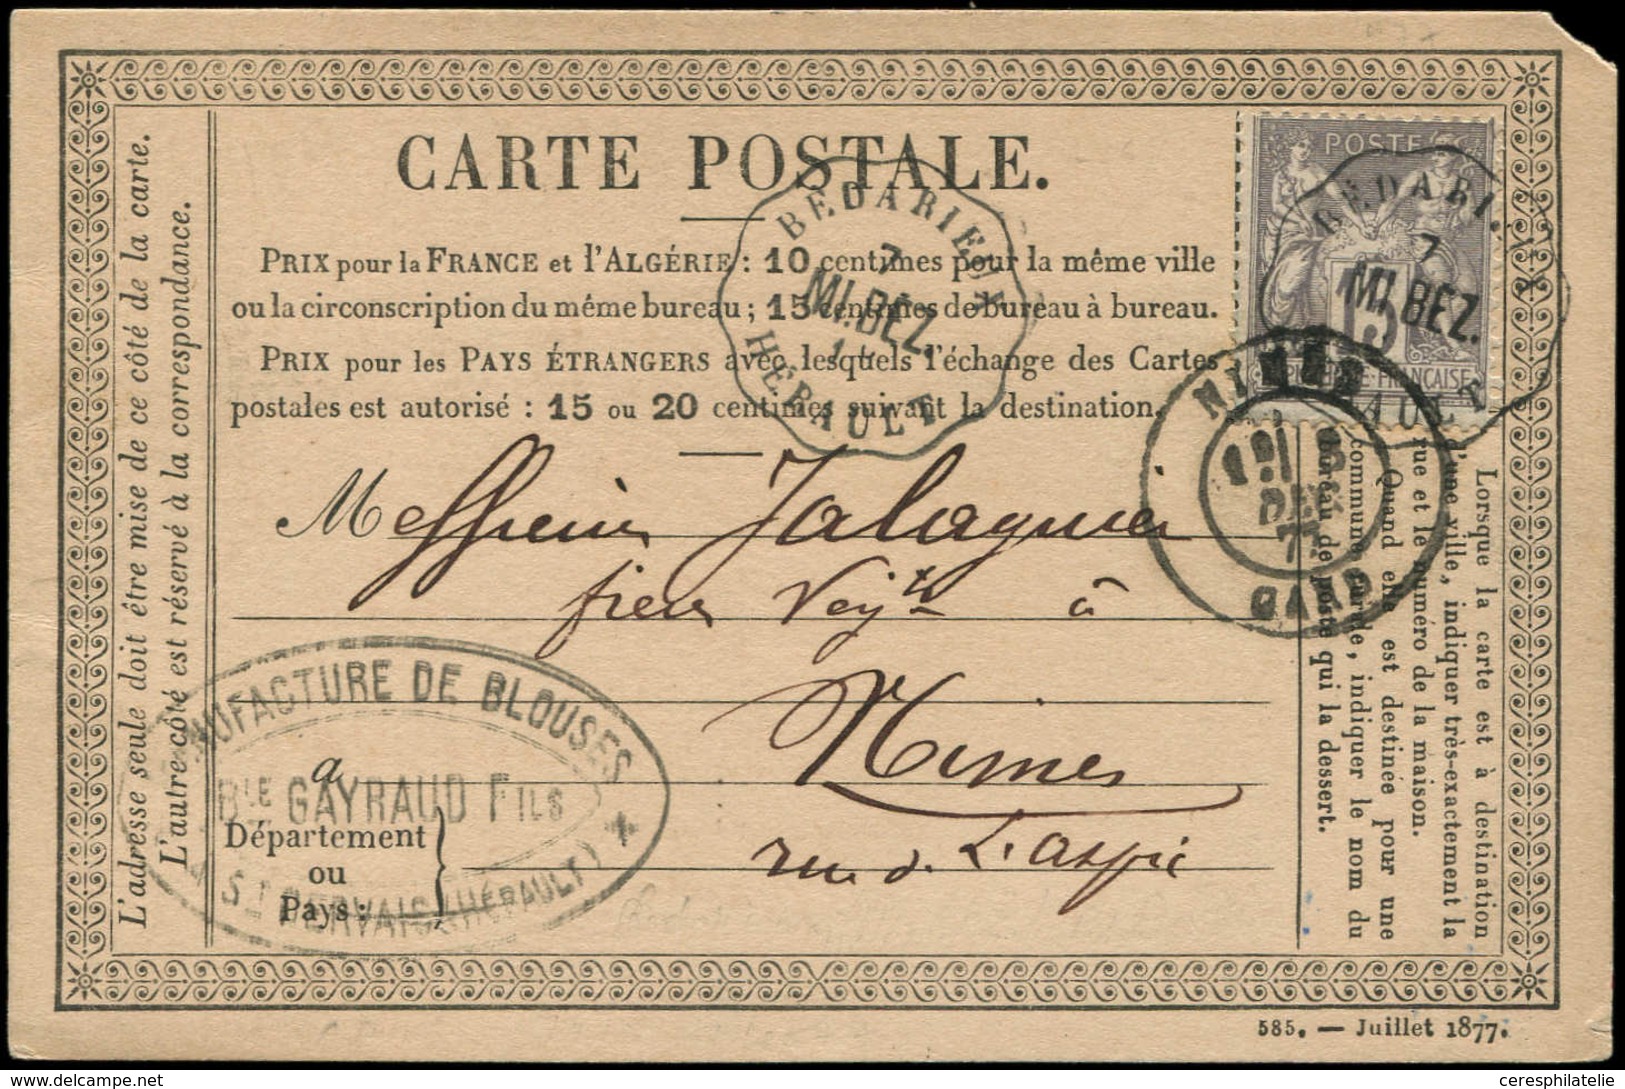 CARTE POSTALE.
PRIX pour la FRANCE et l'ALGÉRIE : 10 centimes pour la même ville
ou la circonscription du même bureau ; 15 centimes de bureau à bureau.
PRIX pour les PAYS ÉTRANGERS avec lesquels l'échange des Cartes
postales est autorisé : 15 ou 20 centimes suivant la destination.
L'adresse seule doit être mise de ce côté de la carte.
L'autre côté est réservé à la correspondance.
POSTE
15
FRANÇAISE
BEDARIEUX
7
MI.BEZ.
HÉRAULT
BEDARI
7
MI.BEZ.
AULT
NIMES
DEC
77
GARD
Messieurs Jalaguier
à
Nimes
rue de L'aspic
MANUFACTURE DE BLOUSES
GAYRAUD FILS
ST GERVAIS (HÉRAULT)
à
Département
ou
Pays :
Lorsque la carte est à destination
d'une ville, indiquer très-exactement la
rue et le numéro de la maison.
Quand elle est destinée pour une
commune rurale, indiquer le nom du
bureau de poste qui la dessert.
585. — Juillet 1877.
©ceresphilatelie
delcampe.net